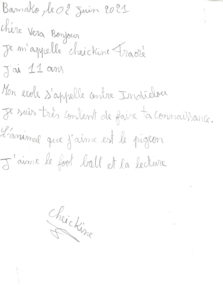 Bamako, le 02 Juin 2021
Chère Vera Bonjour
Je m'appelle cheickine Traoré
J'ai 11 ans
Mon ecole s'appelle centre
Je suis très content de faire ta connaissance.
L'animal que j'aime est le pigeon
J'aime le foot ball et la lecture
cheickine